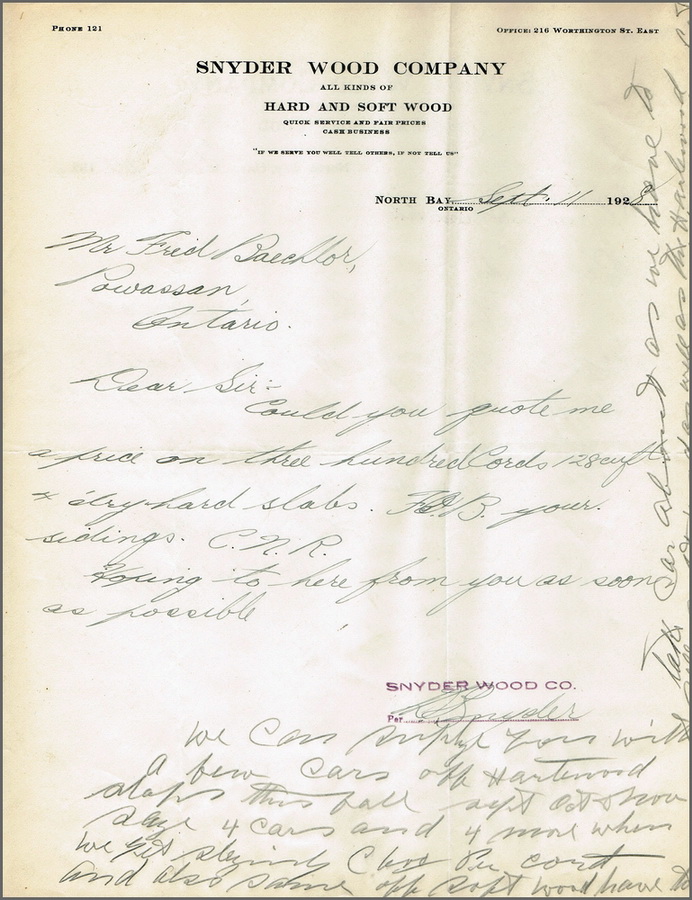 PHONE 121
OFFICE: 216 WORTHINGTON ST. EAST
SNYDER WOOD COMPANY
ALL KINDS OF
HARD AND SOFT WOOD
QUICK SERVICE AND FAIR PRICES
CASH BUSINESS
"IF WE SERVE YOU WELL TELL OTHERS, IF NOT TELL US"
NORTH BAY Sept. 11 1928
ONTARIO
Mr Fred Baechlor,
Powassan,
Ontario.
Dear Sir:-
Could you quote me
a price on three hundred Cords 128 cu ft
dry hard slabs. F.O.B. your.
sidings. C.N.R.
Hoping to here from you as soon
as possible
SNYDER WOOD CO.
Per Snyder
we can supply you with
a few cars off Hardwood
slaps this fall sept Oct & Nov
saye 4 cars and 4 more when
we get
and also same off soft wood have to
Take Car about as we have to
as the Hardwood